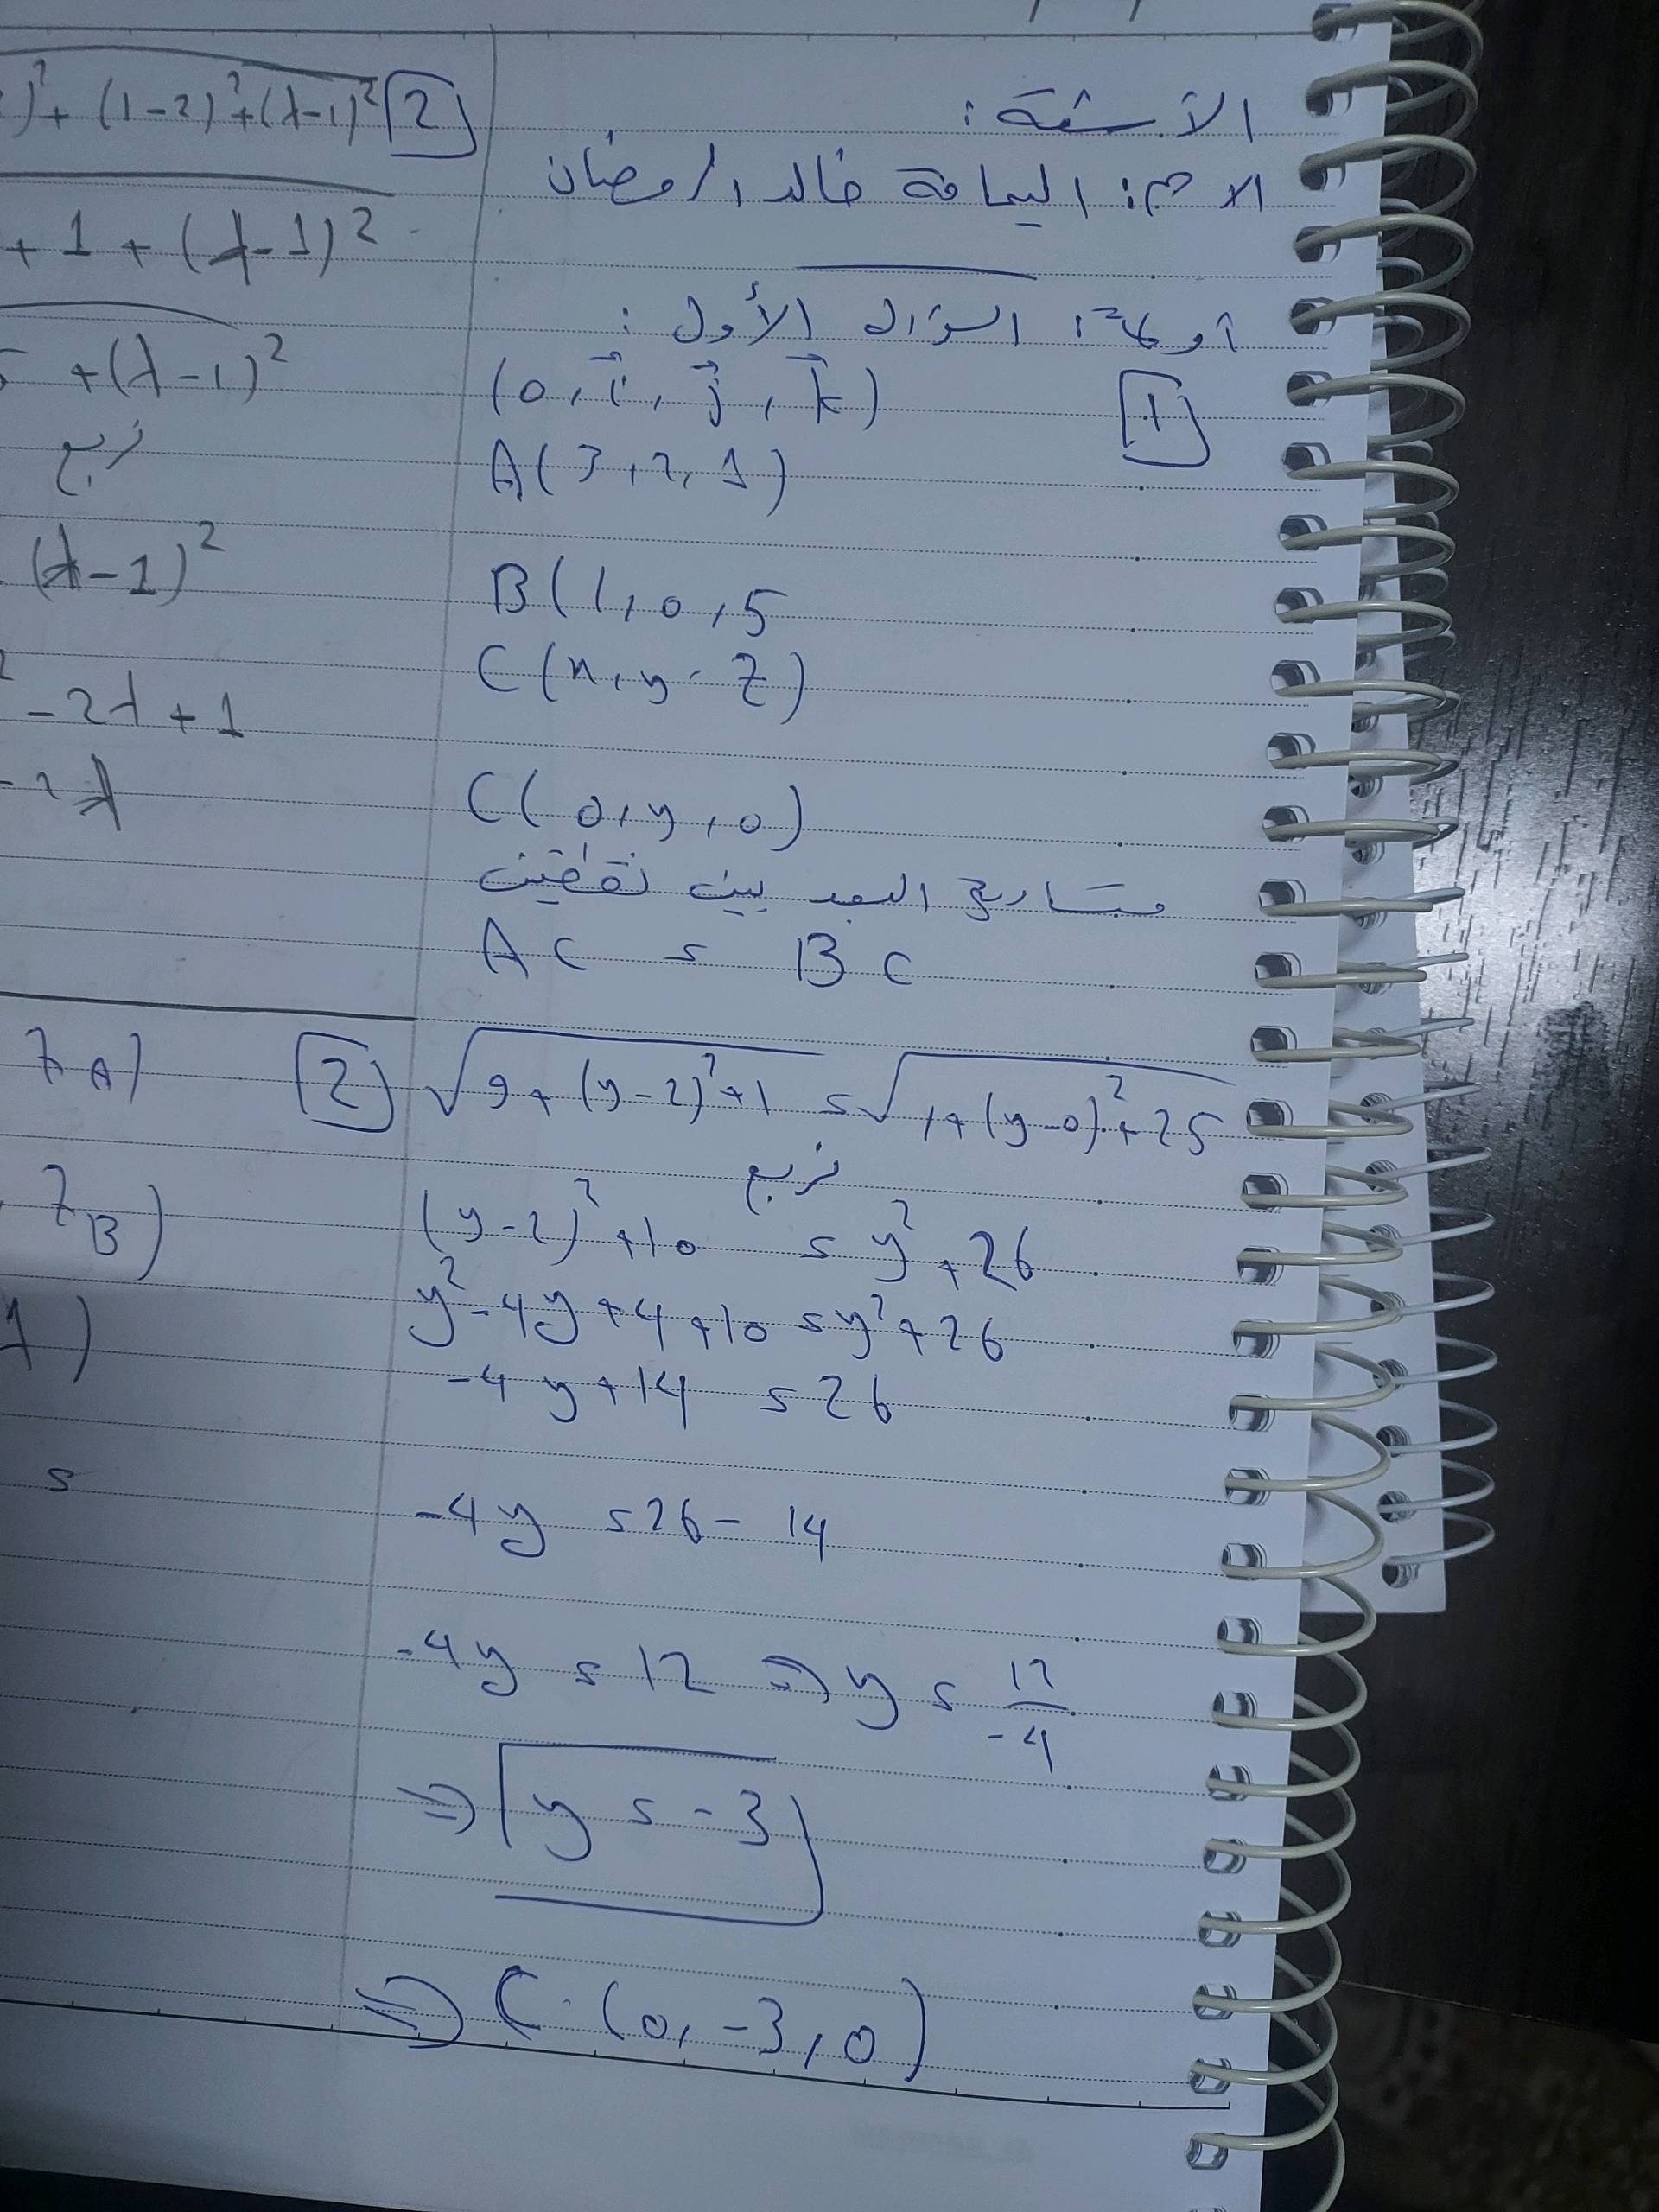 الأسئلة:
الاسم: اليمامة خالد رمضان
أولاً: السؤال الأول:
1
(o, i, j, k)
A(3, 2, 1)
B(1, 0, 5
C(x, y, z)
C(0, y, 0)
متساوي البعد بين نقطتين
AC = BC
√9+(y-2)²+1 = √1+(y-0)²+25
نربع
(y-2)²+10 = y²+26
y²-4y+4+10 = y²+26
-4y+14 = 26
-4y = 26-14
-4y = 12 ⇒ y = 12/-4
⇒ y = -3
⇒ C(0, -3, 0)
2
)²+(1-2)²+(λ-1)²
+1+(λ-1)²
+(λ-1)²
نربع
(λ-1)²
-2λ+1
-2λ
2
zA)
zB)
)
=